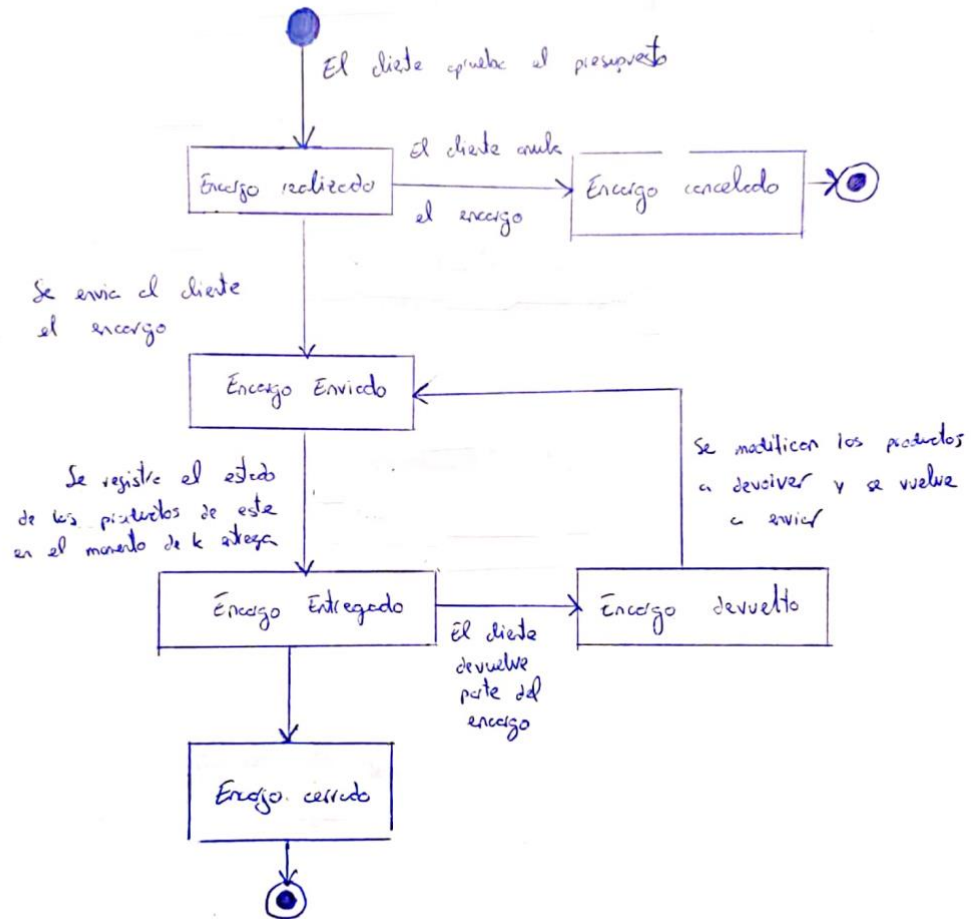 El cliente aprueba el presupuesto
El cliente anula
el encargo
Encargo realizado
Encargo cancelado
Se envia al cliente
el encargo
Encargo Enviado
Se modifican los productos
a devolver y se vuelve
a enviar
Se registra el estado
de los productos de este
en el momento de la entrega
Encargo Entregado
Encargo devuelto
El cliente
devuelve
parte del
encargo
Encargo cerrado